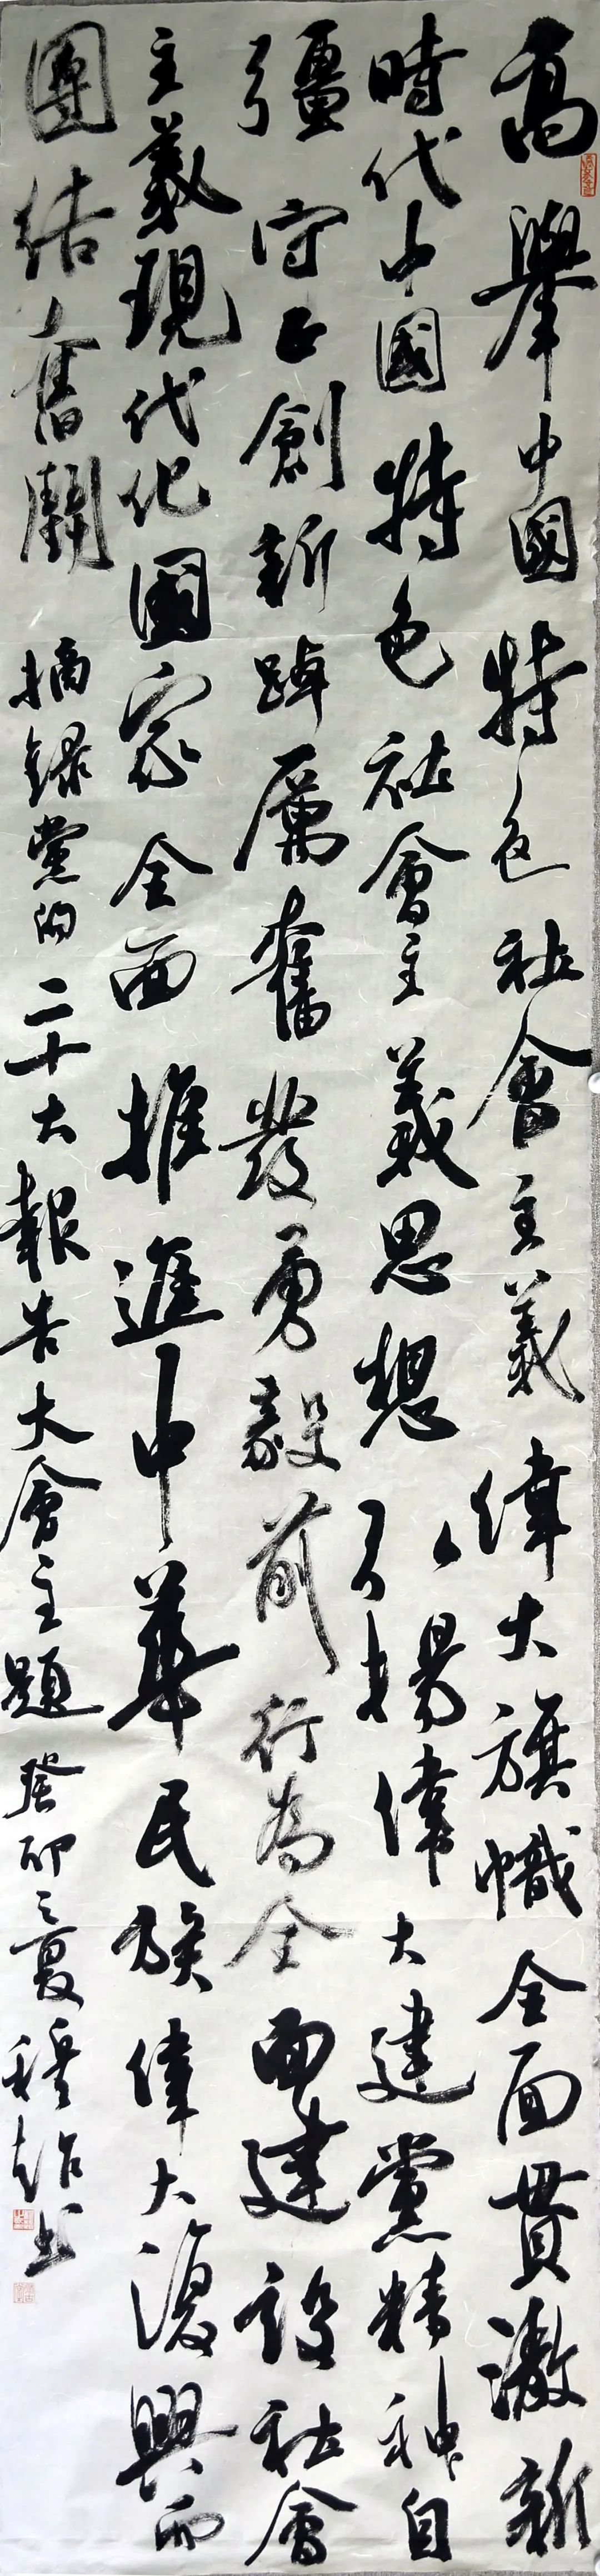 高舉中國特色社會主義偉大旗幟全面貫澈新
時代中國特色社會主義思想弘揚偉大建黨精神自
彊守正創新踔厲奮發勇毅前行為全面建設社會
主義現代化國家全面推進中華民族偉大復興而
團結奮鬪摘錄黨的二十大報告大會主題癸卯之夏穆超书